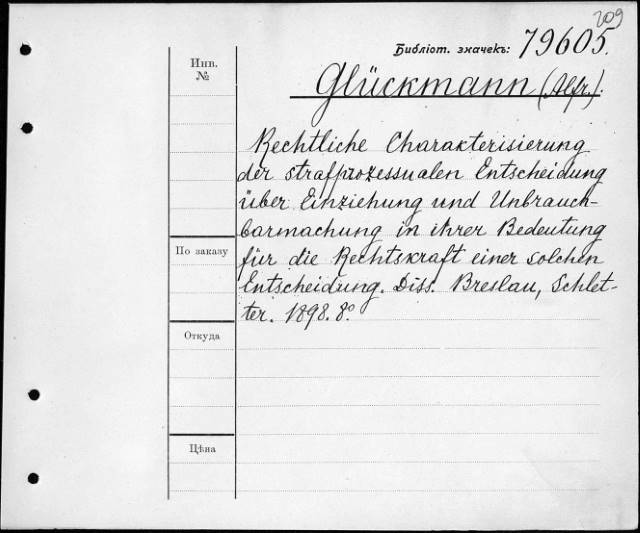 209
Библіот. значекъ: 79605.
Инв.
№
Glückmann (Alfr.).
Rechtliche Charakterisierung
der strafprozessualen Entscheidung
über Einziehung und Unbrauch-
barmachung in ihrer Bedeutung
für die Rechtskraft einer solchen
Entscheidung. Diss. Breslau, Schlet-
ter. 1898. 8º.
По заказу
Откуда
Цѣна